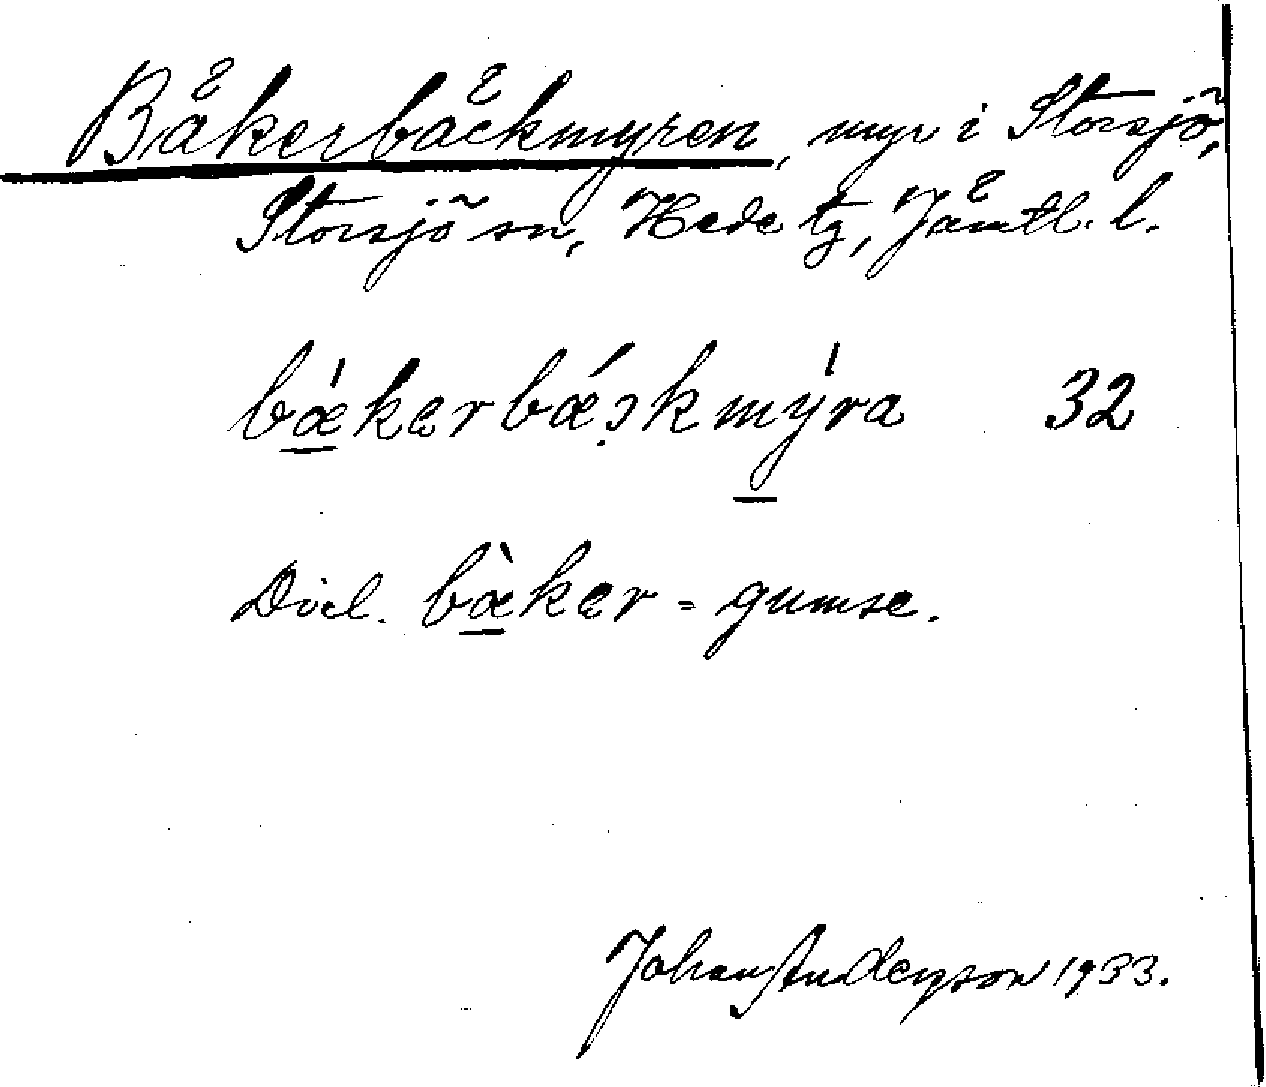 Bäkerbäckmyren, myr i Storsjö,
Storsjö sn, Hede tg, Jämtl. l.
bǽkerbǽkmýra 32
Dial. bæ̀ker = gumse.
Johan Anderzson 1933.